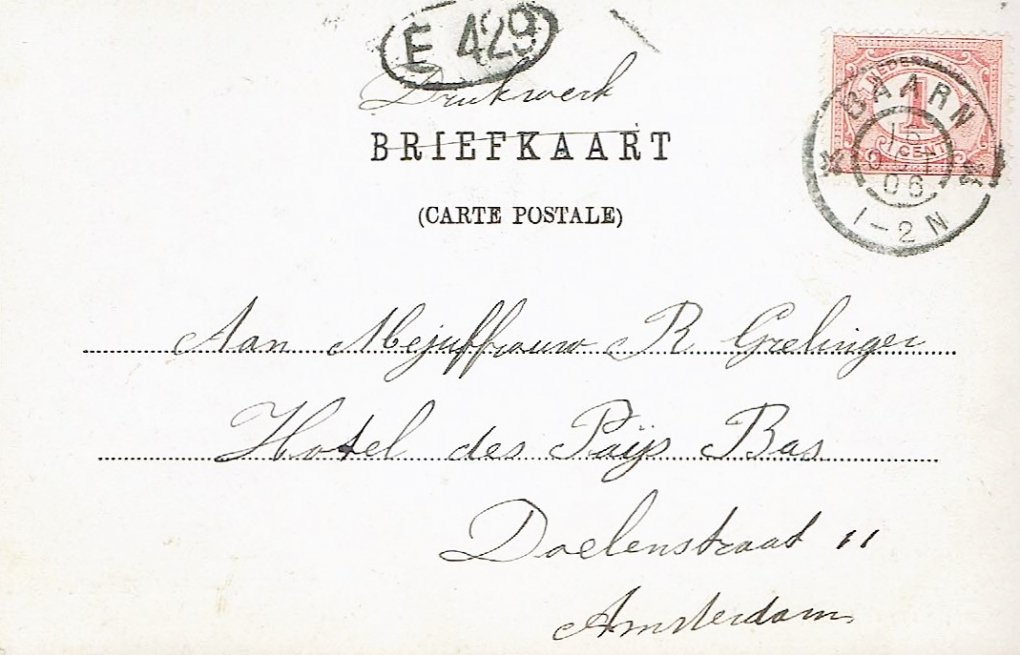 E 429
Drukwerk
BRIEFKAART
(CARTE POSTALE)
NEDERLAND
1
CENT
BAARN
15
06
1-2 N
Aan Mejuffrouw R Grelinger
Hotel des Païjs Bas
Doelenstraat 11
Amsterdam